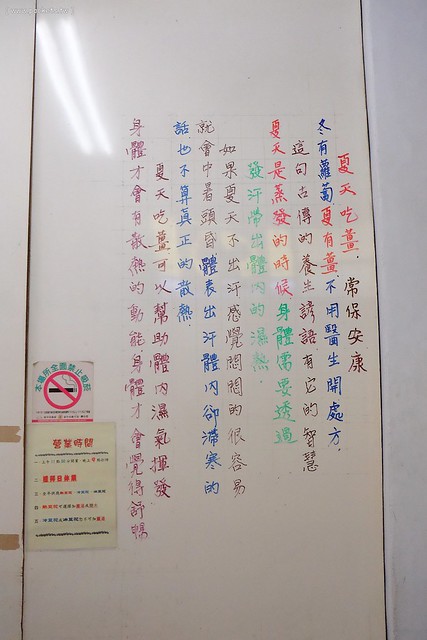 夏天吃薑.常保安康
冬有蘿蔔夏有薑.不用醫生開處方.
這句古傳的養生諺語有它的智慧
夏天是蒸發的時候.身體需要透過
發汗帶出體內的濕熱.
如果夏天不出汗感覺悶悶的很容易
就會中暑頭昏體表出汗體內卻滯寒的
話也不算真正的散熱.
夏天吃薑可以幫助體內濕氣揮發
身體才會有散熱的動能.身體才會覺得舒暢
本場所全面禁止吸菸
營業時間